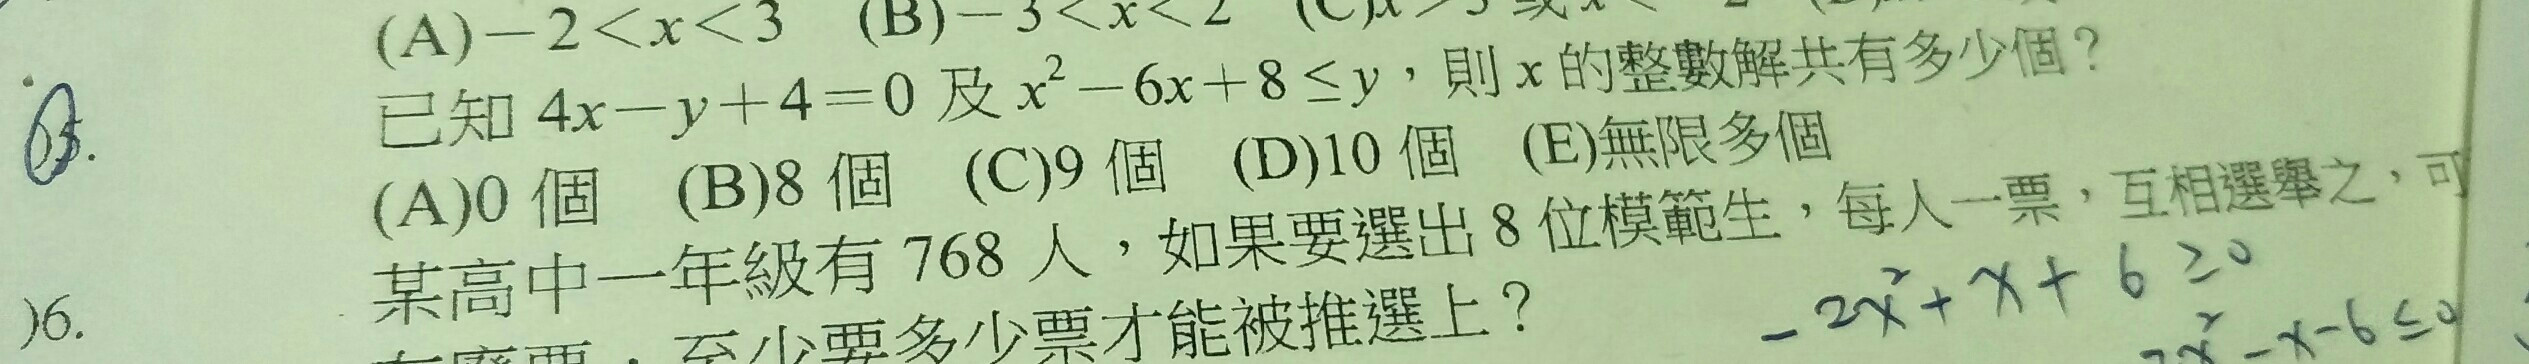 (A)－2＜x＜3 (B)－3＜x＜2
05.
已知 4x－y＋4＝0 及 x²－6x＋8≤y，則 x 的整數解共有多少個？
(A)0 個 (B)8 個 (C)9 個 (D)10 個 (E)無限多個
)6.
某高中一年級有 768 人，如果要選出 8 位模範生，每人一票，互相選舉之，可
至少要多少票才能被推選上？
-2x²+x+6≥0
x²-x-6≤0